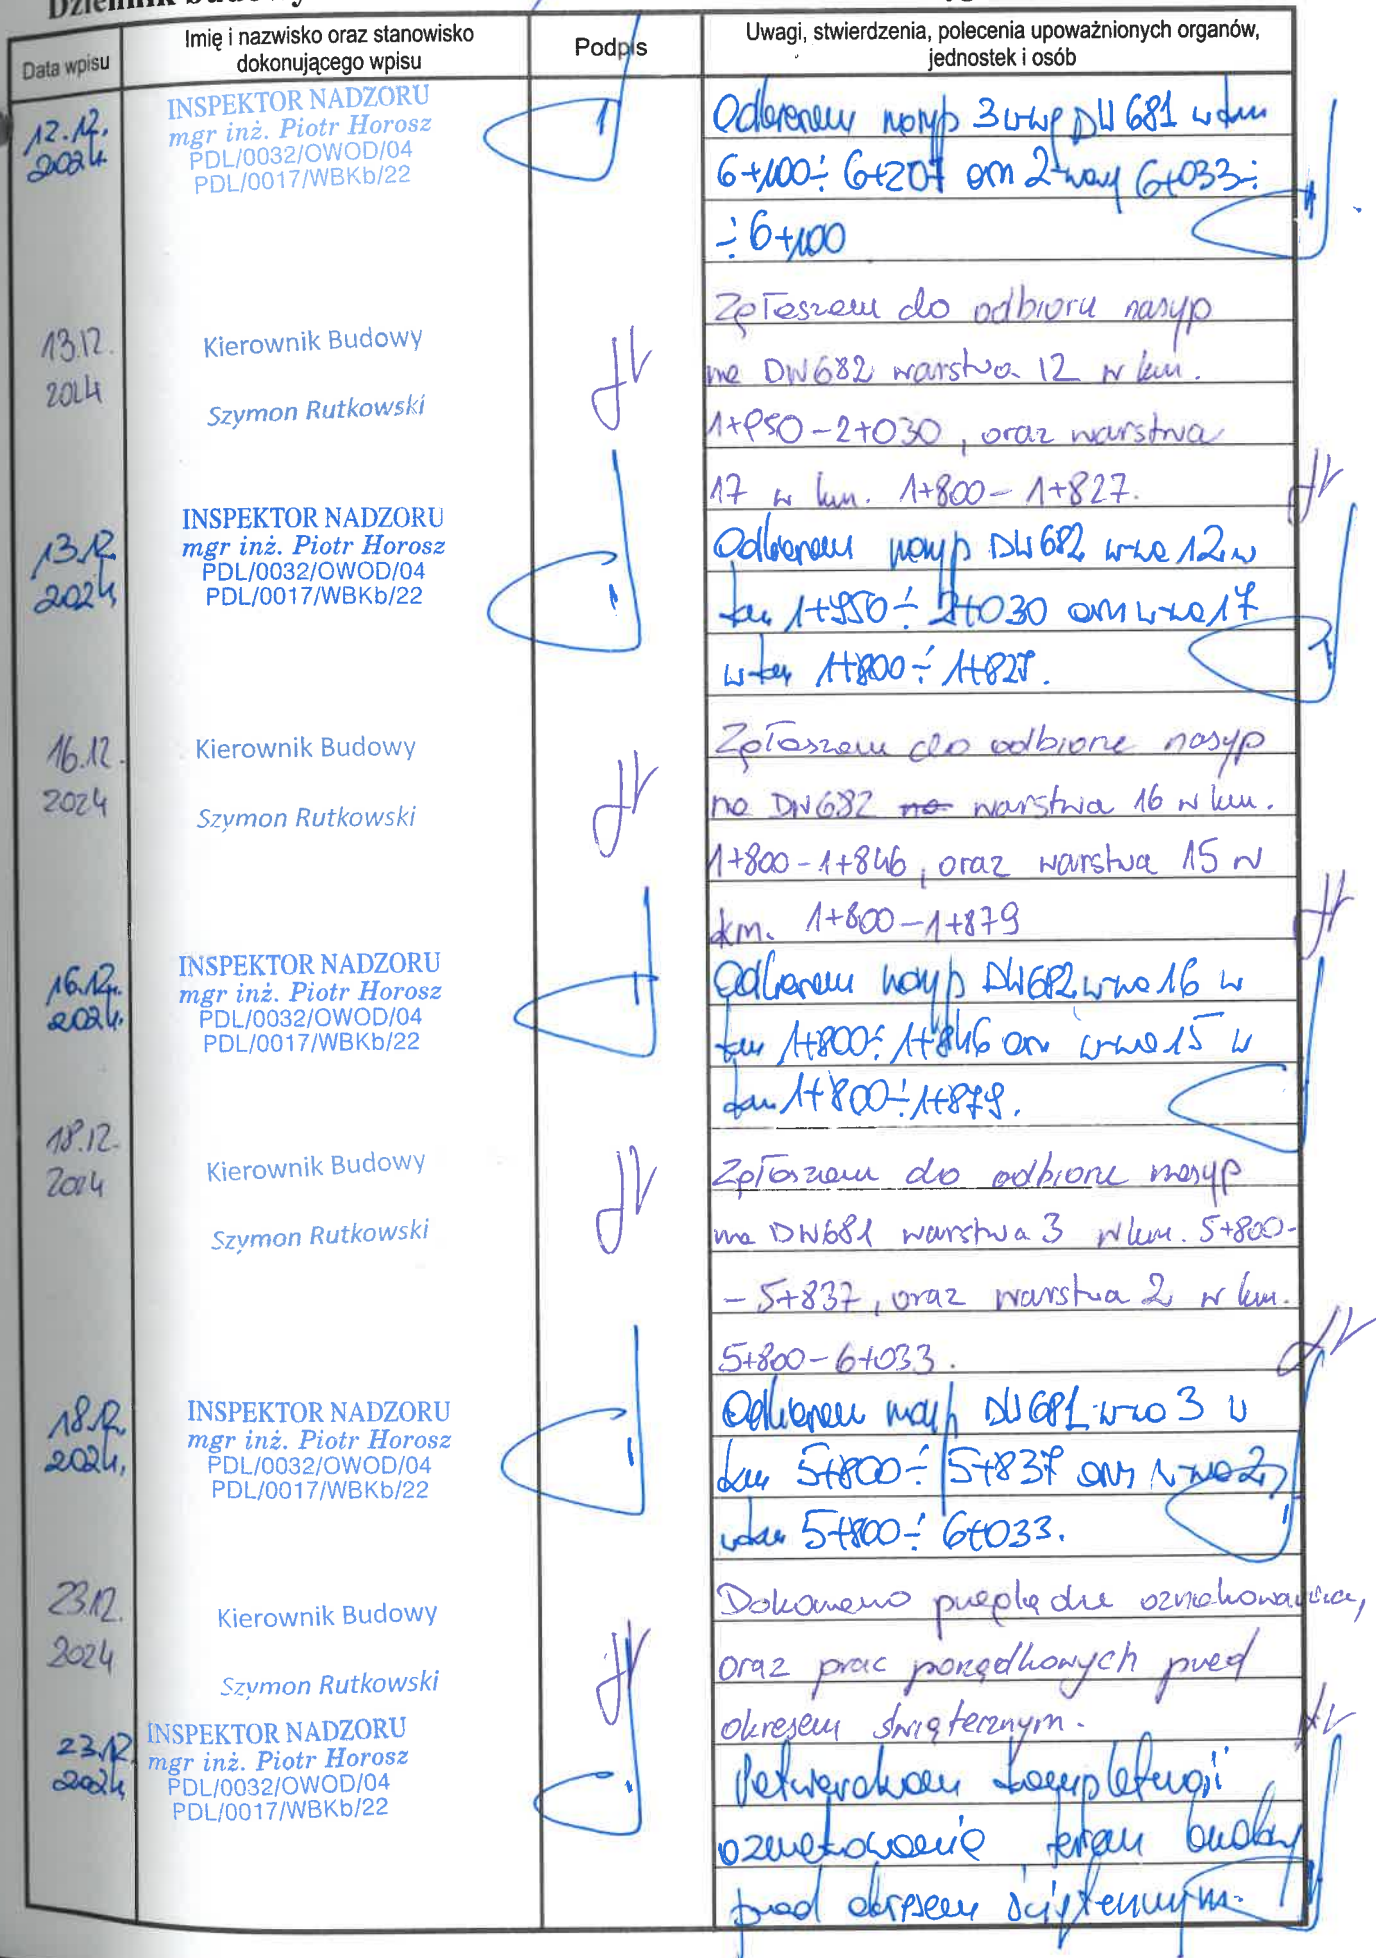 Dziennik budowy
Data wpisu
Imię i nazwisko oraz stanowisko
dokonującego wpisu
Podpis
Uwagi, stwierdzenia, polecenia upoważnionych organów,
jednostek i osób
12.12.
2024.
INSPEKTOR NADZORU
mgr inż. Piotr Horosz
PDL/0032/OWOD/04
PDL/0017/WBKb/22
Odbieram nasyp 3 DW 681 w km
6+100÷ 6+207 2 6+033÷
÷6+100
13.12.
2024
Kierownik Budowy
Szymon Rutkowski
Zgłaszam do odbioru nasyp
na DW682 warstwa 12 w km.
1+950-2+030, oraz warstwa
17 w km. 1+800-1+827.
13.12
2024
INSPEKTOR NADZORU
mgr inż. Piotr Horosz
PDL/0032/OWOD/04
PDL/0017/WBKb/22
Odbieram nasyp DW 682 w-wa 12 w
km 1+950÷ 2+030 oraz w-wa 17
w km 1+800÷ 1+827.
16.12.
2024
Kierownik Budowy
Szymon Rutkowski
Zgłaszam do odbioru nasyp
na DW682 warstwa 16 w km.
1+800-1+846, oraz warstwa 15 w
km. 1+800-1+879
16.12.
2024.
INSPEKTOR NADZORU
mgr inż. Piotr Horosz
PDL/0032/OWOD/04
PDL/0017/WBKb/22
Odbieram nasyp DW682 w-wa 16 w
km 1+800÷ 1+846 oraz w-wa 15 w
km 1+800÷1+879.
18.12.
2024
Kierownik Budowy
Szymon Rutkowski
Zgłaszam do odbioru nasyp
na DW681 warstwa 3 w km. 5+800-
- 5+837, oraz warstwa 2 w km.
5+800-6+033.
18.12.
2024.
INSPEKTOR NADZORU
mgr inż. Piotr Horosz
PDL/0032/OWOD/04
PDL/0017/WBKb/22
Odbieram nasyp DW 681 w-wa 3 w
km 5+800÷ 5+837 oraz w-wa 2
w km 5+800÷ 6+033.
23.12.
2024
Kierownik Budowy
Szymon Rutkowski
Dokonano przeglądu oznakowania,
oraz prac porządkowych przed
okresem świątecznym.
23.12
2024
INSPEKTOR NADZORU
mgr inż. Piotr Horosz
PDL/0032/OWOD/04
PDL/0017/WBKb/22
Potwierdzam
oznakowanie terenu budowy
przed okresem świątecznym.